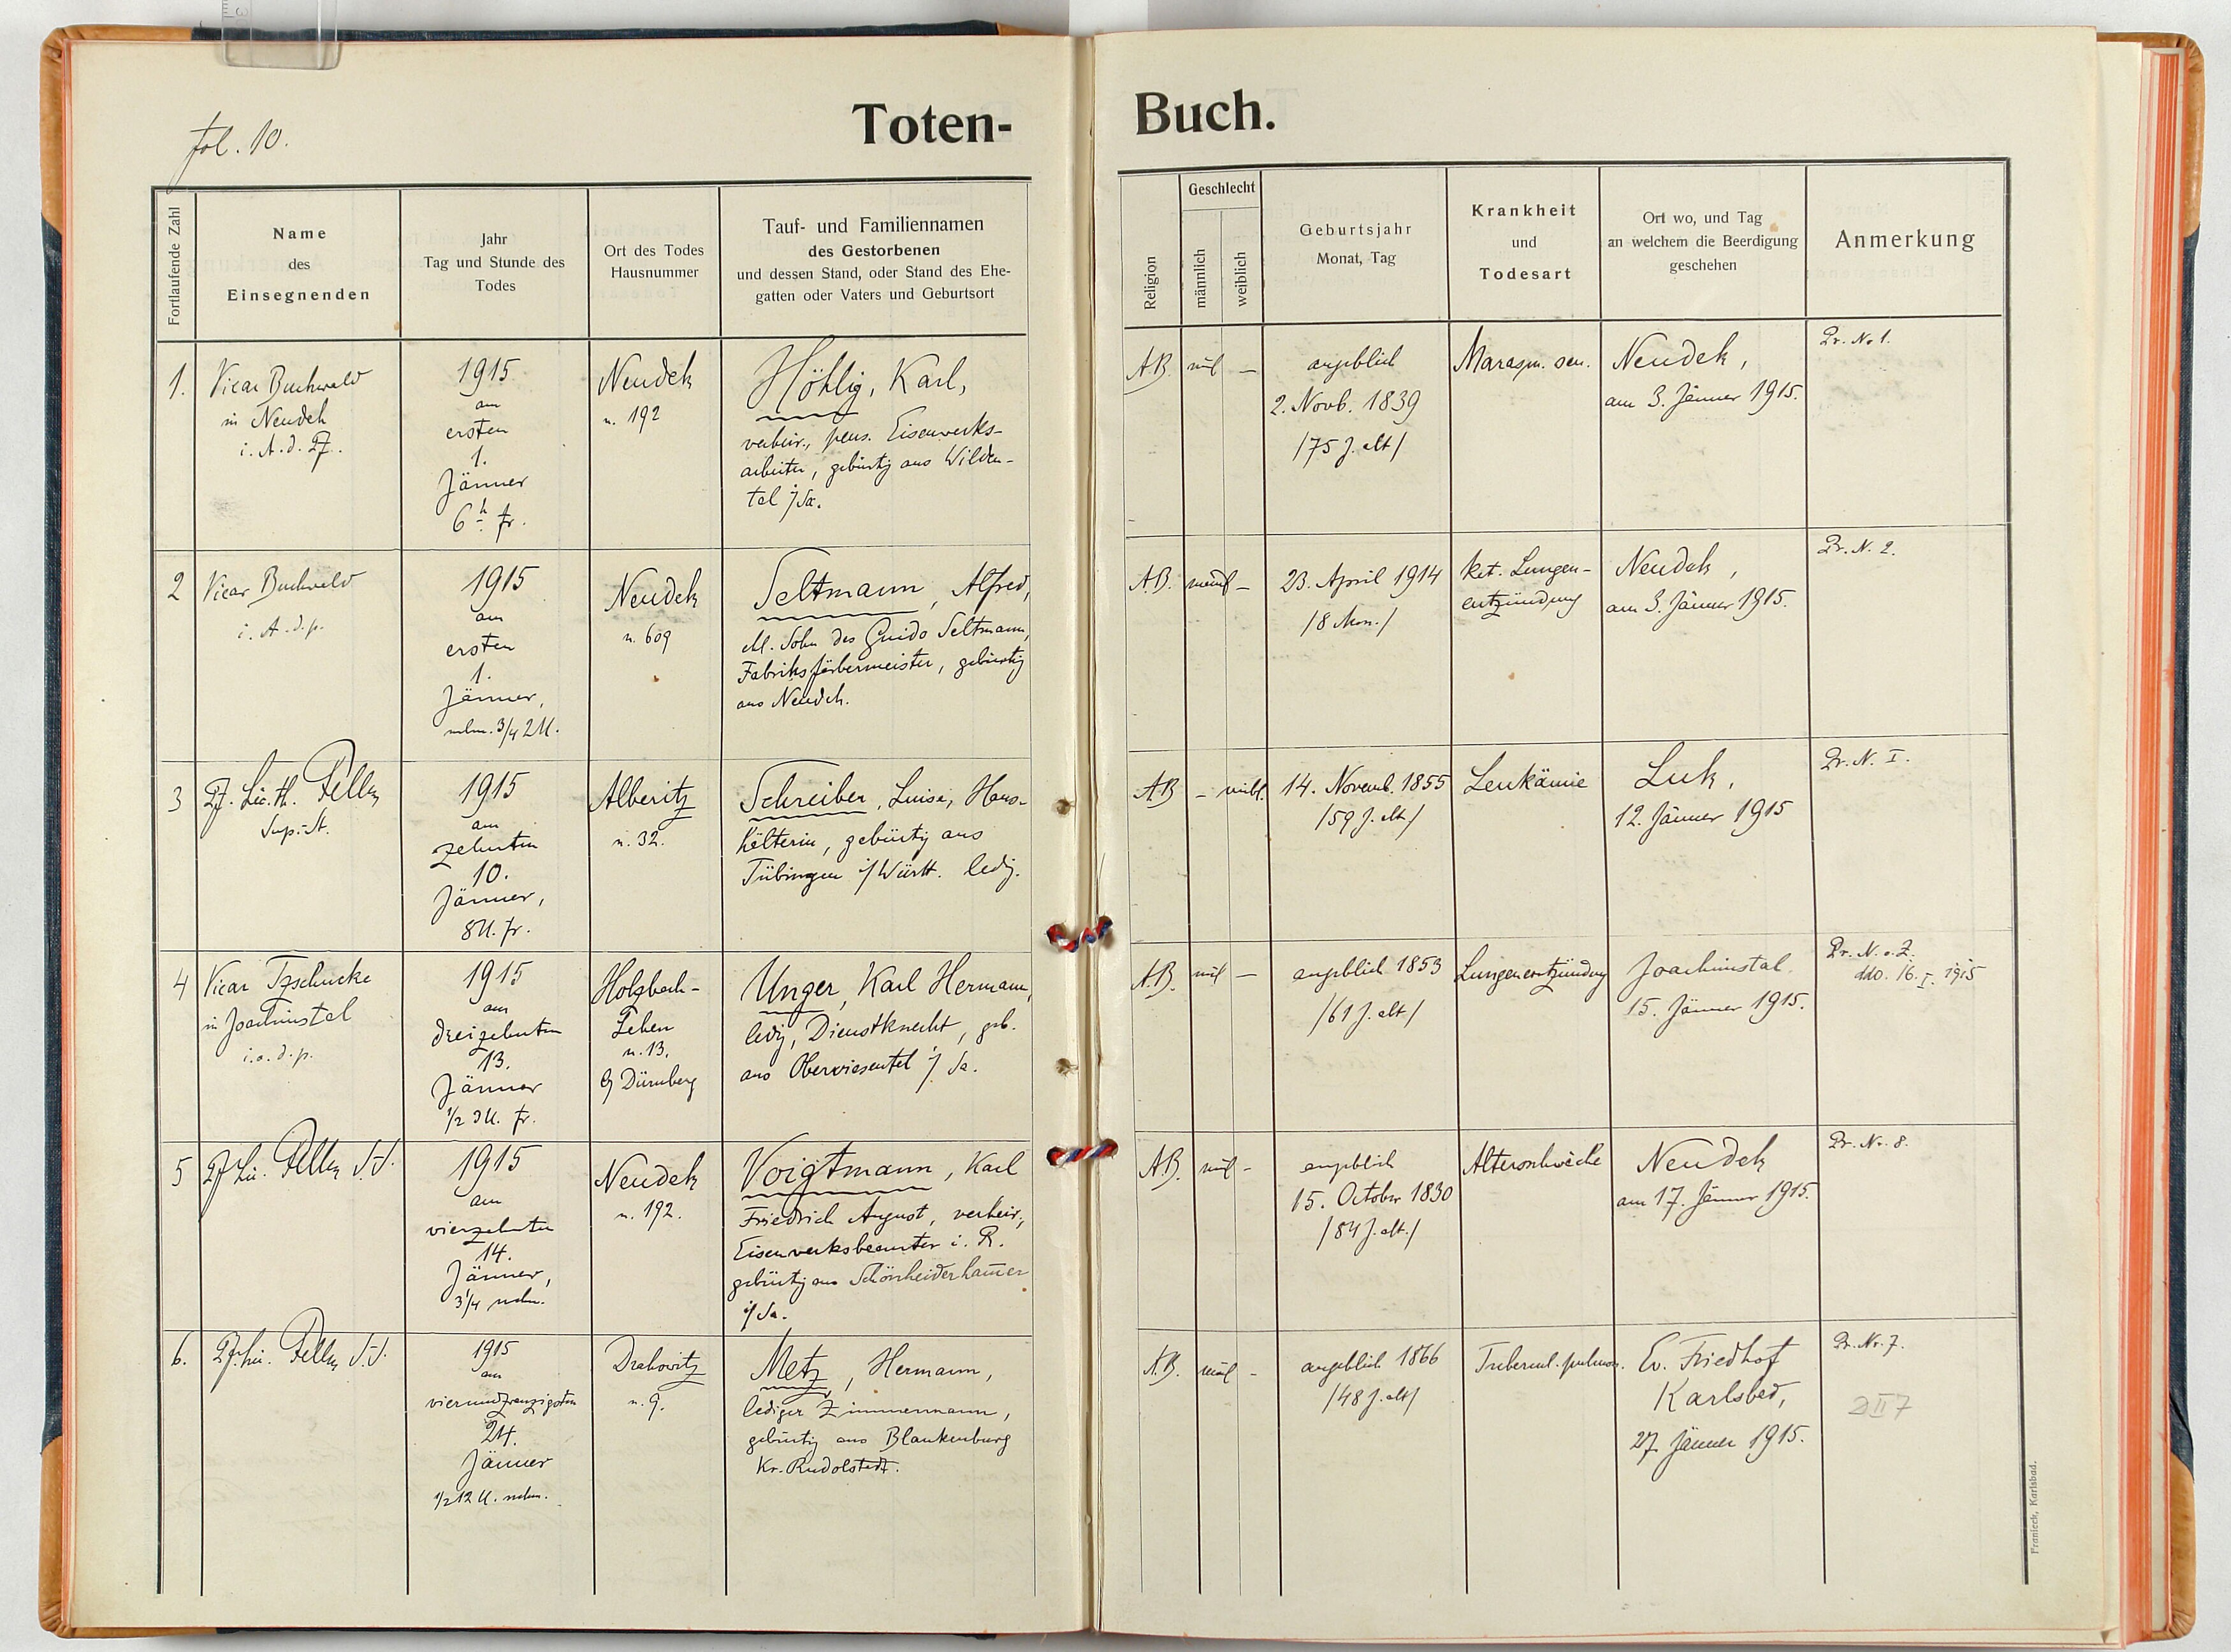 fol. 10.
Toten-
Buch.
Fortlaufende Zahl
Name
des
Einsegnenden
Jahr
Tag und Stunde des
Todes
Ort des Todes
Hausnummer
Tauf- und Familiennamen
des Gestorbenen
und dessen Stand, oder Stand des Ehe-
gatten oder Vaters und Geburtsort
Religion
Geschlecht
männlich
weiblich
Geburtsjahr
Monat, Tag
Krankheit
und
Todesart
Ort wo, und Tag
an welchem die Beerdigung
geschehen
Anmerkung
1.
Vicar Buchwald
in Neudek
i. A. d. Pf.
1915
am
ersten
1.
Jänner
6h fr.
Neudek
n. 192
Höhlig, Karl,
verheir., pens. Eisenwerks-
arbeiter, gebürtig aus Wilden-
tal i/Sa.
AB.
ml
—
angeblich
2. Novb. 1839
/75 J. alt/
Marasm. sen.
Neudek,
am 3. Jänner 1915.
Pr. No 1.
2
Vicar Buchwald
i. A. d. p.
1915
am
ersten
1.
Jänner,
nchm. 3/4 2 U.
Neudek
n. 609
Seltmann, Alfred,
ehl. Sohn des Guido Seltmann,
Fabriksfärbermeister, gebürtig
aus Neudek.
AB.
männl
-
23. April 1914
/8 Mon./
kat. Lungen-
entzündung
Neudek,
am 3. Jänner 1915.
Pr. N. 2.
3
Pf. Lic. th. Feller
Sup.-St.
1915
am
zehnten
10.
Jänner,
8 U. fr.
Alberitz
n. 32.
Schreiber, Luise, Haus-
hälterin, gebürtig aus
Tübingen i/Württ. ledig.
AB
-
weibl.
14. Novemb. 1855
/59 J. alt/
Leukämie
Luk,
12. Jänner 1915
Pr. N. I.
4
Vicar Tzschucke
in Joachimstal
i. a. d. p.
1915
am
dreizehnten
13.
Jänner
1/2 3 U. fr.
Holzbach-
Lehen
n. 13.
Dürnberg
Unger, Karl Hermann,
ledig, Dienstknecht, geb.
aus Oberwiesental i/ Sa.
A.B.
ml
—
angeblich 1853
/61 J. alt/
Lungenentzündung
Joachimstal
15. Jänner 1915.
Pr. N. 2.
ddo. 16. I. 1915
5
Pf. Lic. Feller S.S.
1915
am
vierzehnten
14.
Jänner,
3/4 nchm.
Neudek
n. 192.
Voigtmann, Karl
Friedrich August, verheir.,
Eisenwerksbeamter i. R.
gebürtig aus Schönheiderham̅er
i/ Sa.
AB.
ml
-
angeblich
15. October 1830
/84 J. alt./
Altersschwäche
Neudek
am 17. Jänner 1915.
Pr. Nr. 8.
6.
Pf. Lic. Feller S.S.
1915
am
vierundzwanzigsten
24.
Jänner
1/2 12 U. nchm.
Drahowitz
n. 9.
Metz, Hermann,
lediger Zimmermann,
gebürtig aus Blankenburg
Kr. Rudolstadt.
A.B.
ml
-
angeblich 1866
/48 J. alt/
Tubercul. pulmon.
Ev. Friedhof
Karlsbad,
27. Jänner 1915.
Pr. Nr. 7.
D II 7
Franieck, Karlsbad.